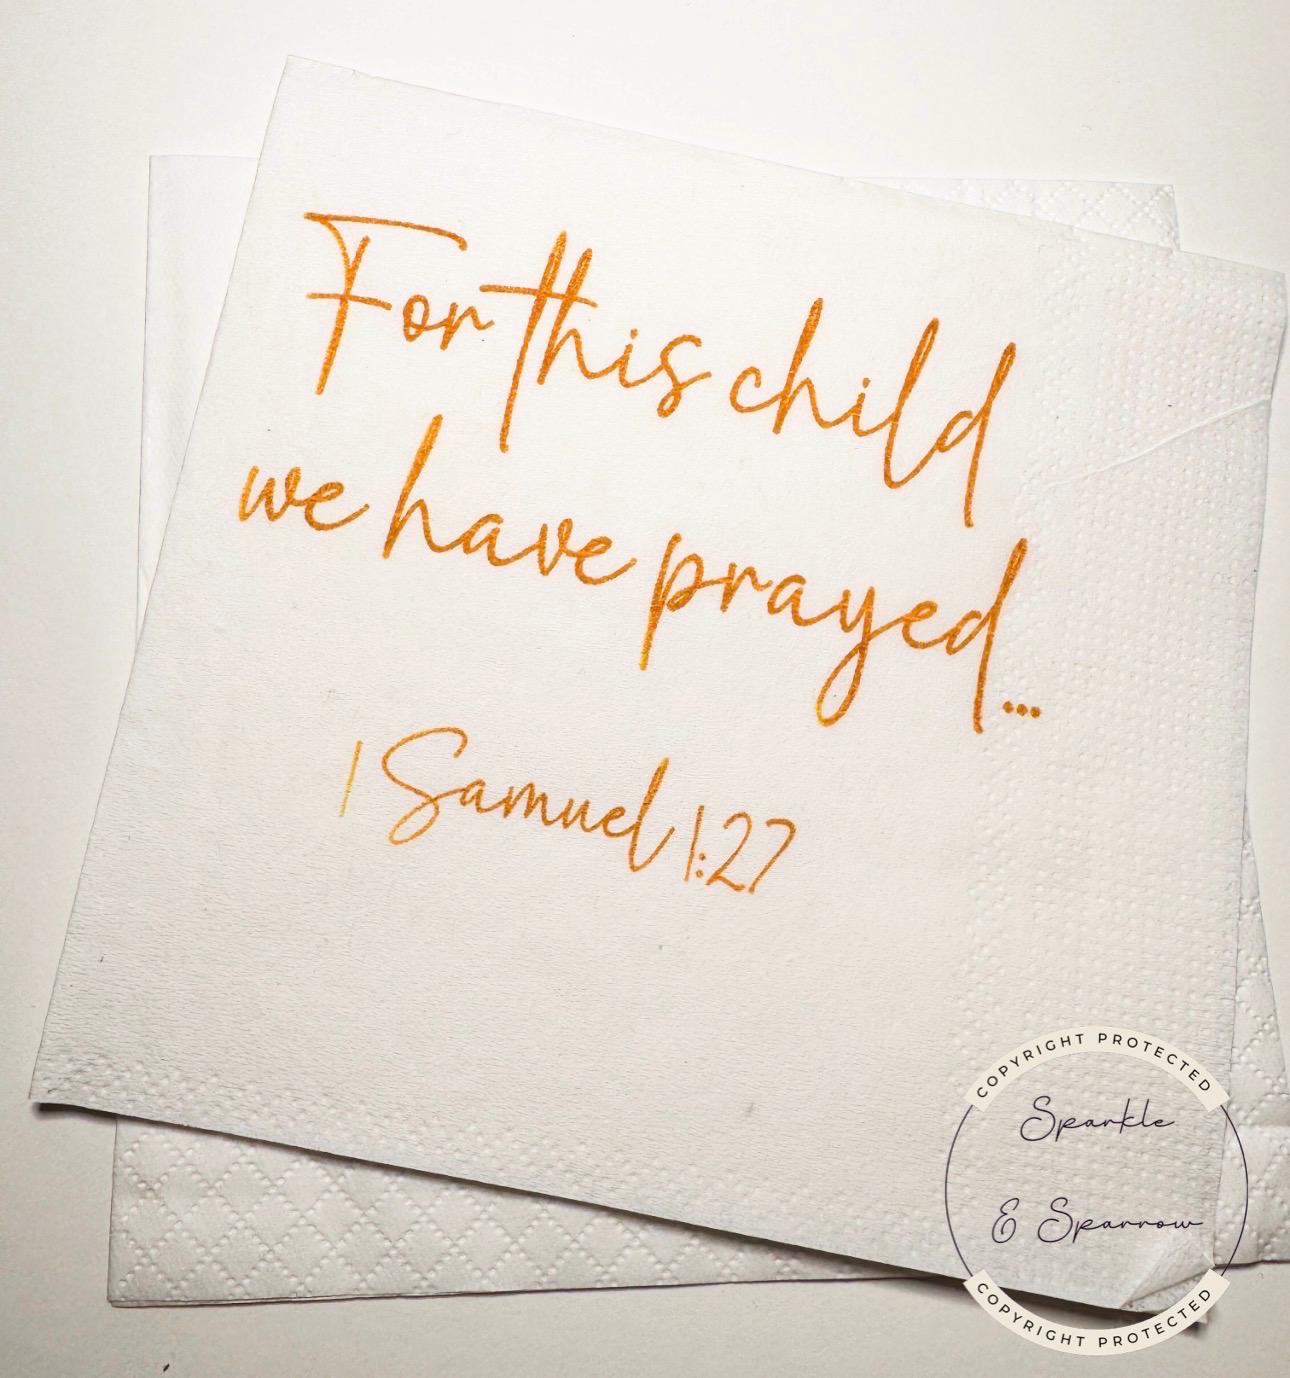 For this child
we have prayed...
1 Samuel 1:27
COPYRIGHT PROTECTED
Sparkle
& Sparrow
COPYRIGHT PROTECTED